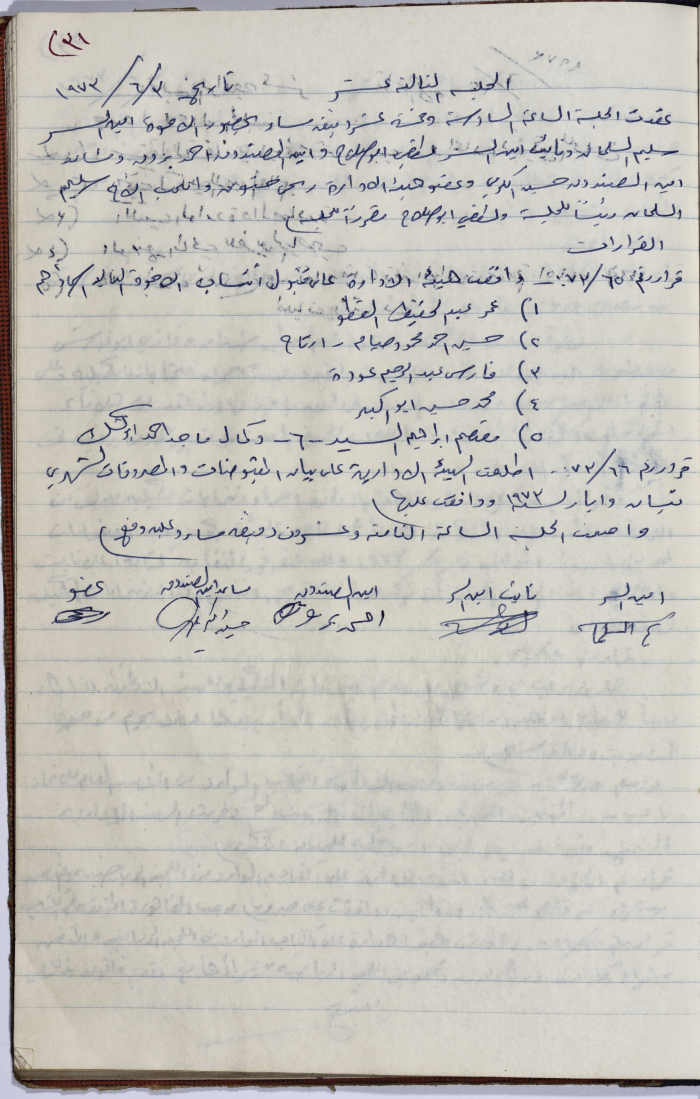 (٣١
الجلسة الثالثة عشر بتاريخ ٣/٦/١٩٧٣
عقدت الجلسة الساعة السادسة وخمسة عشر دقيقة مساء بحضور الاخوة امين السر
سليم السلمان ونائب امين السر لطفي ابو صلاح وامين الصندوق احمد بدون ومساعد
امين الصندوق حسين الكردي وعضو هيئة الادارة وانتخب الاخ سليم
السلمان رئيساً للجلسة ولطفي ابو صلاح مقرراً للجلسة
القرارات
قرار رقم ٦٥/٧٣ وافقت هيئة الادارة على قبول انتساب الاخوة التالية اسماؤهم
١) عمر عبد الحفيظ القطو
٢) حسين احمد محمود صيام - ارتاح
٣) فارس عبد الرحيم عودة
٤) محمد حسين ابو اكبر
٥) معتصم ابراهيم السيد - ٦ - وكمال ماجد احمد
قرار رقم ٦٦/٧٣ اطلعت الهيئة الادارية على بيان المقبوضات والمصروفات لشهري
نيسان وايار لسنة ١٩٧٣ ووافقت عليها
واختتمت الجلسة الساعة الثامنة وعشرون دقيقة مساء وعليه وقع
امين السر نائب امين السر امين الصندوق مساعد امين الصندوق عضو